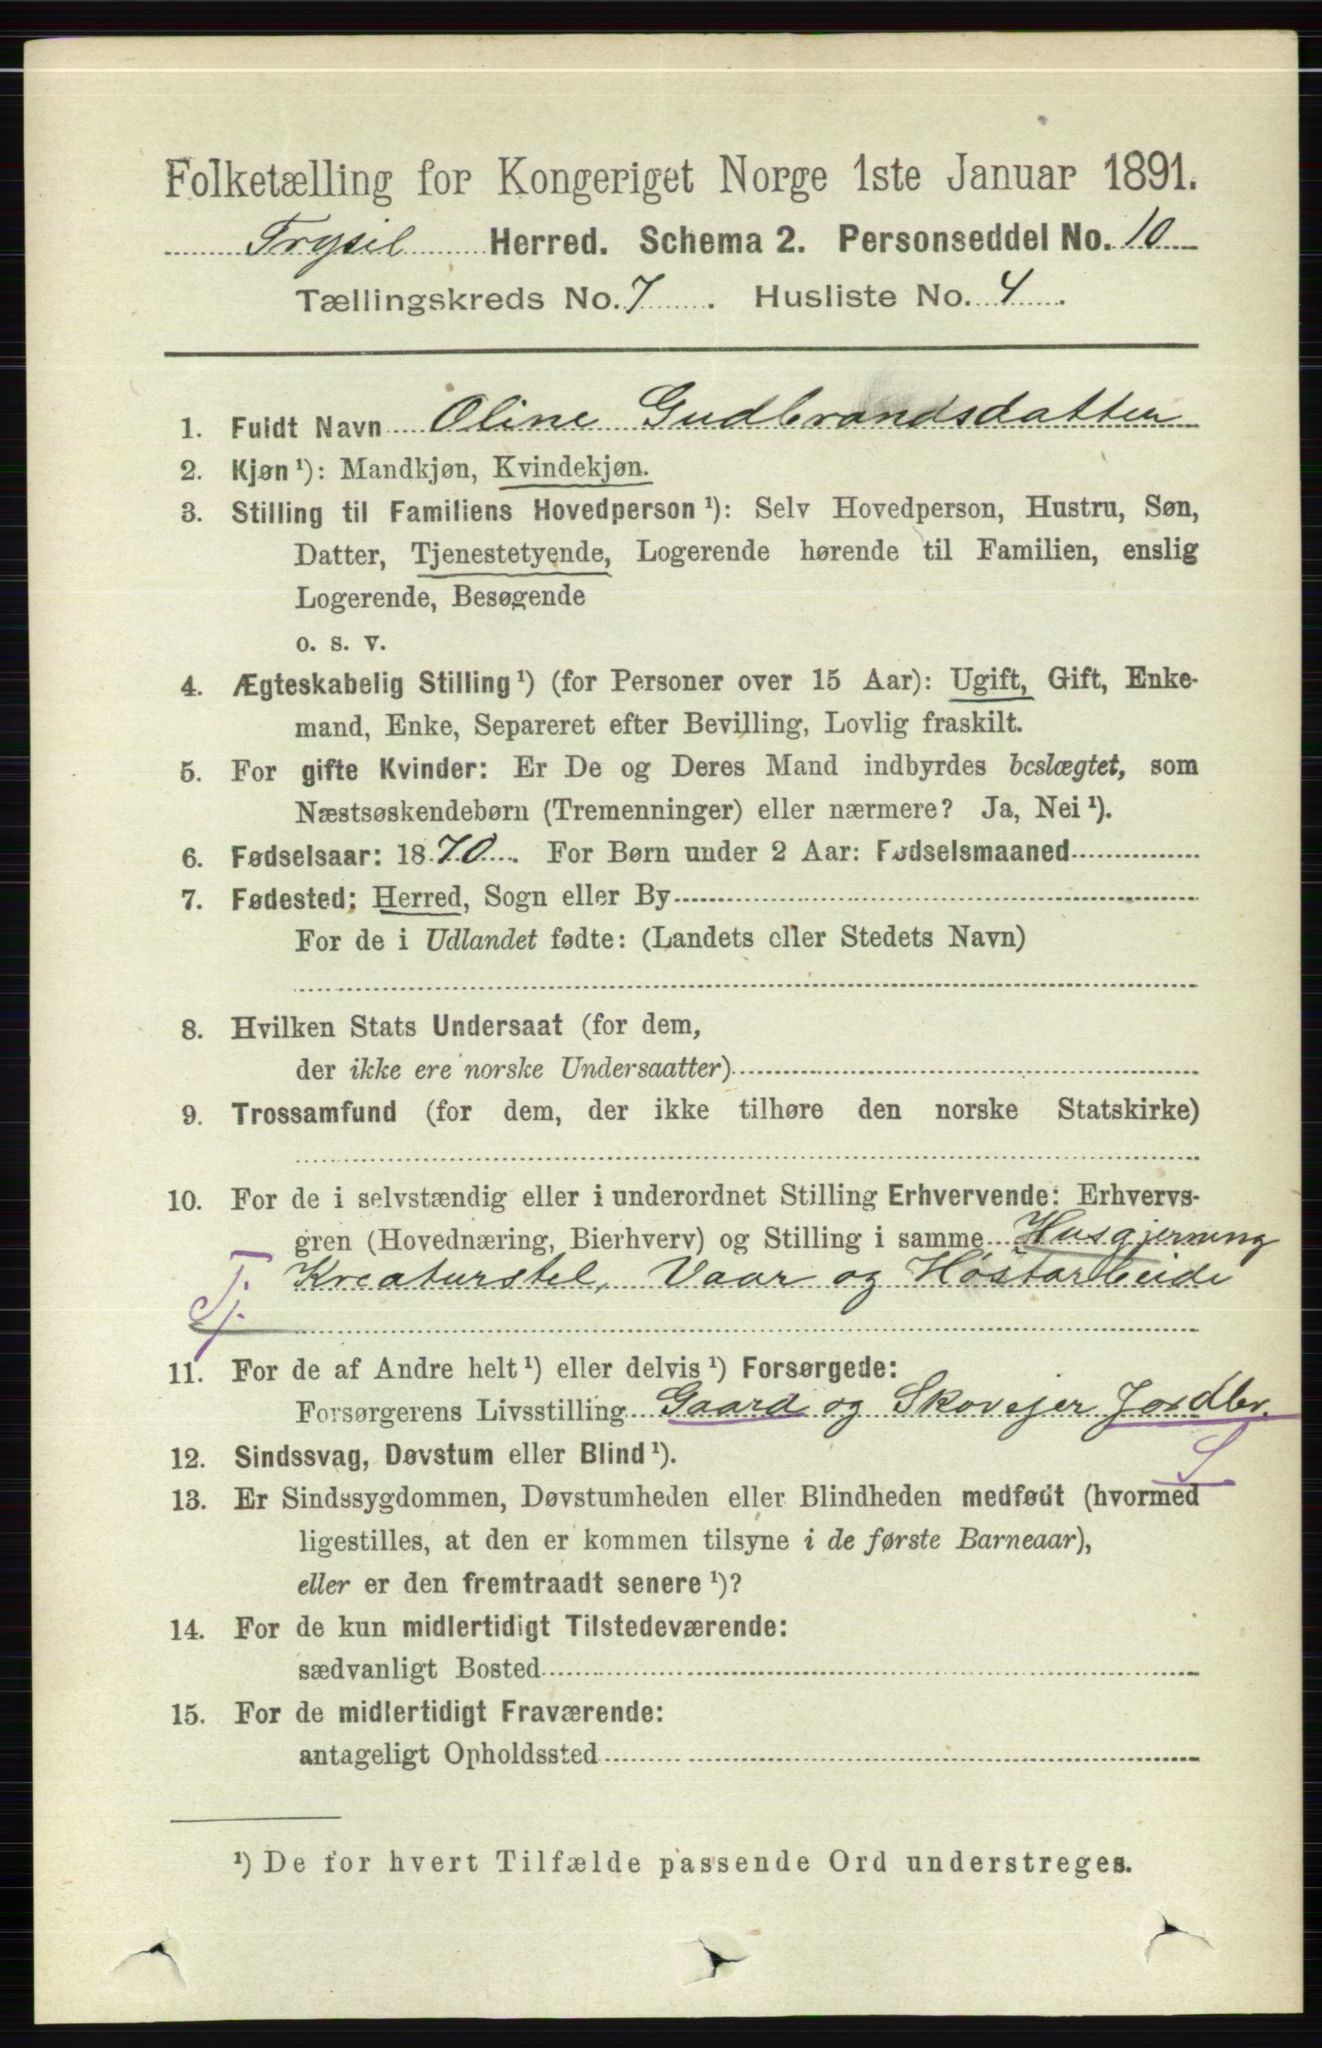 Folketælling for Kongeriget Norge 1ste Januar 1891.
Trysil Herred. Schema 2. Personseddel No. 10
Tællingskreds No. 7. Husliste No. 4.
1. Fuldt Navn Oline Gudbrandsdatter
2. Kjøn ¹): Mandkjøn, Kvindekjøn.
3. Stilling til Familiens Hovedperson ¹): Selv Hovedperson, Hustru, Søn,
Datter, Tjenestetyende, Logerende hørende til Familien, enslig
Logerende, Besøgende
o. s. v.
4. Ægteskabelig Stilling ¹) (for Personer over 15 Aar): Ugift, Gift, Enke-
mand, Enke, Separeret efter Bevilling, Lovlig fraskilt.
5. For gifte Kvinder: Er De og Deres Mand indbyrdes beslægtet, som
Næstsøskendebørn (Tremenninger) eller nærmere? Ja, Nei ¹).
6. Fødselsaar: 1870. For Børn under 2 Aar: Fødselsmaaned
7. Fødested: Herred, Sogn eller By
For de i Udlandet fødte: (Landets eller Stedets Navn)
8. Hvilken Stats Undersaat (for dem,
der ikke ere norske Undersaatter)
9. Trossamfund (for dem, der ikke tilhøre den norske Statskirke)
10. For de i selvstændig eller i underordnet Stilling Erhvervende: Erhvervs-
gren (Hovednæring, Bierhverv) og Stilling i samme Husgjerning
Kreaturstel, Vaar og Høstarbeide
Tj.
11. For de af Andre helt ¹) eller delvis ¹) Forsørgede:
Forsørgerens Livsstilling Gaard og Skovejer Jordbr.
S
12. Sindssvag, Døvstum eller Blind ¹).
13. Er Sindssygdommen, Døvstumheden eller Blindheden medfødt (hvormed
ligestilles, at den er kommen tilsyne i de første Barneaar),
eller er den fremtraadt senere ¹)?
14. For de kun midlertidigt Tilstedeværende:
sædvanligt Bosted
15. For de midlertidigt Fraværende:
antageligt Opholdssted
¹) De for hvert Tilfælde passende Ord understreges.